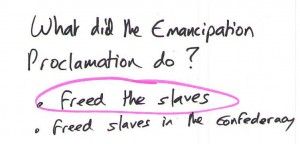 What did the Emancipation
Proclamation do?
• Freed the slaves
• freed slaves in the Confederacy